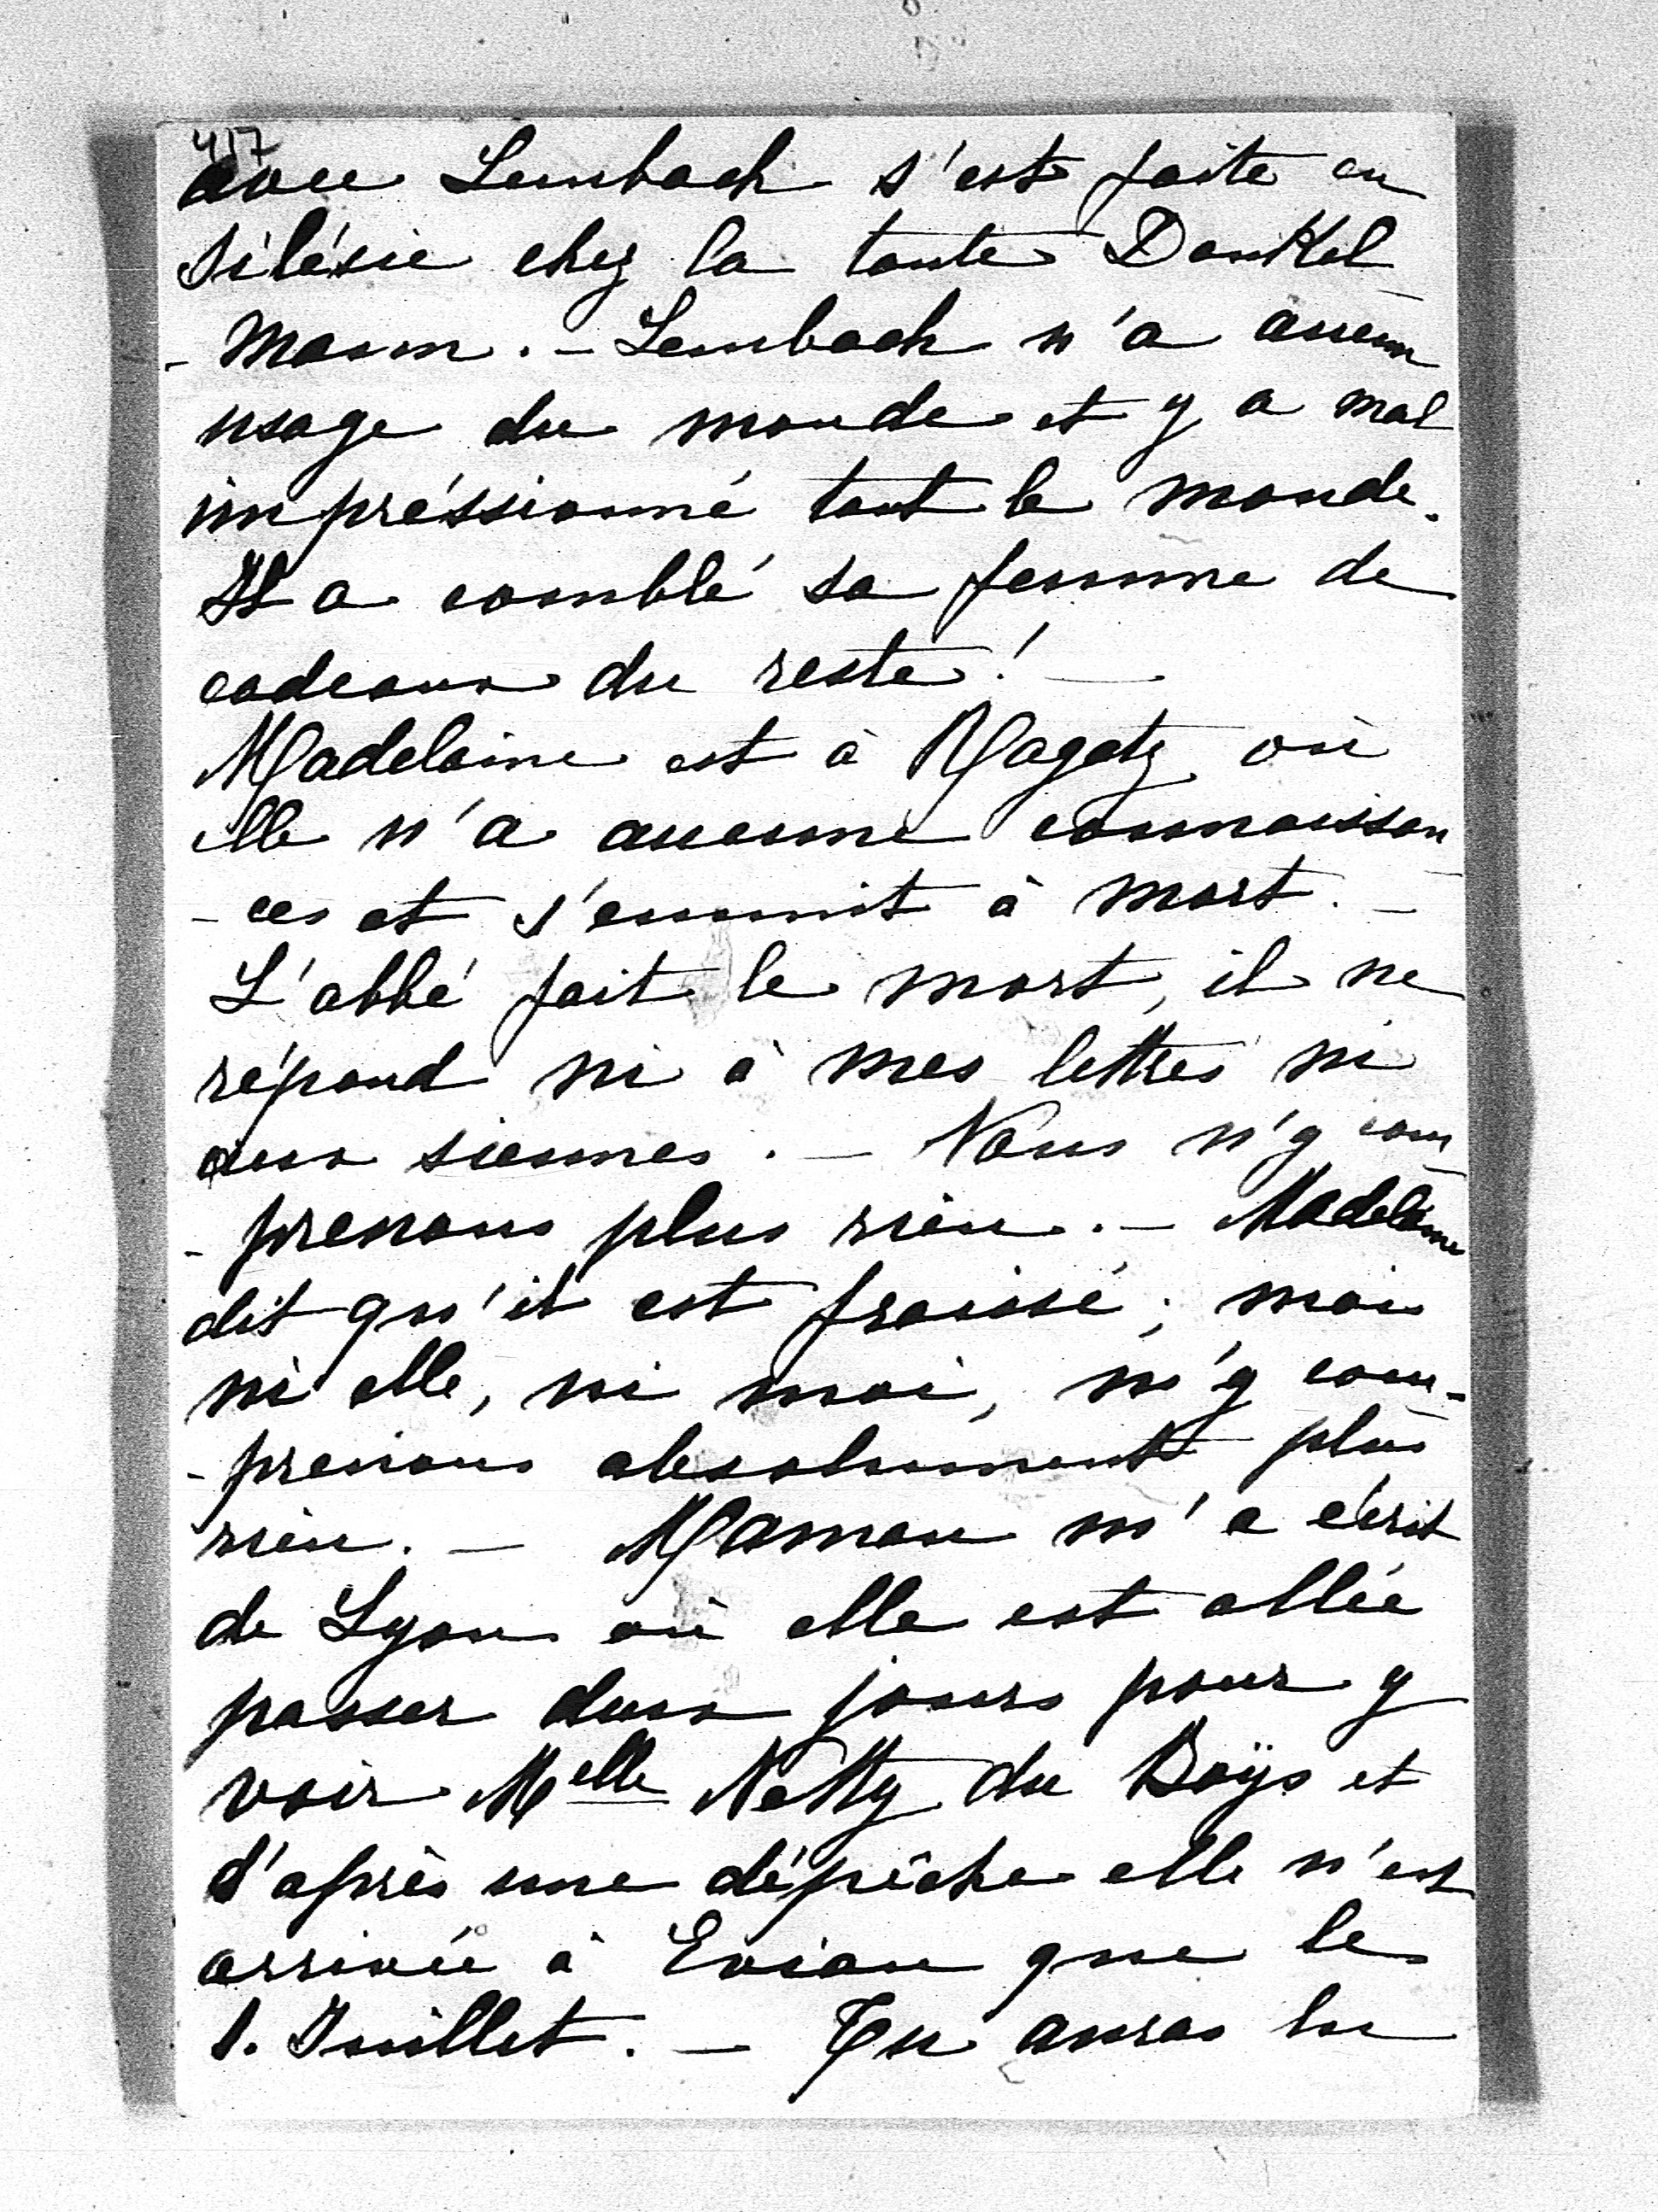 457
avec Lembach s'est faite en
Silésie chez la tante Dankel
- mann. - Lembach n'a aucun
usage du monde et y a mal
impréssionné tout le monde.
Il a comblé sa femme de
cadeaux du reste! -
Madelaine est à Ragatz où
elle n'a aucune connaissan
- ces et s'ennuit à mort. -
L'abbé fait le mort, il ne
répond ni à mes lettres ni
aux siennes. - Nous n'y com
- prenons plus rien. - Madelaine
dit qu'il est froissé; mais
ni elle, ni moi, n'y com-
- prenons absolument plus
rien. - Maman m'a écrit
de Lyon où elle est allée
passer deux jours pour y
voir Melle Netty du Boÿs et
d'après une dépêche elle n'est
arrivée à Evian que le
1. Juillet. - Tu auras lu